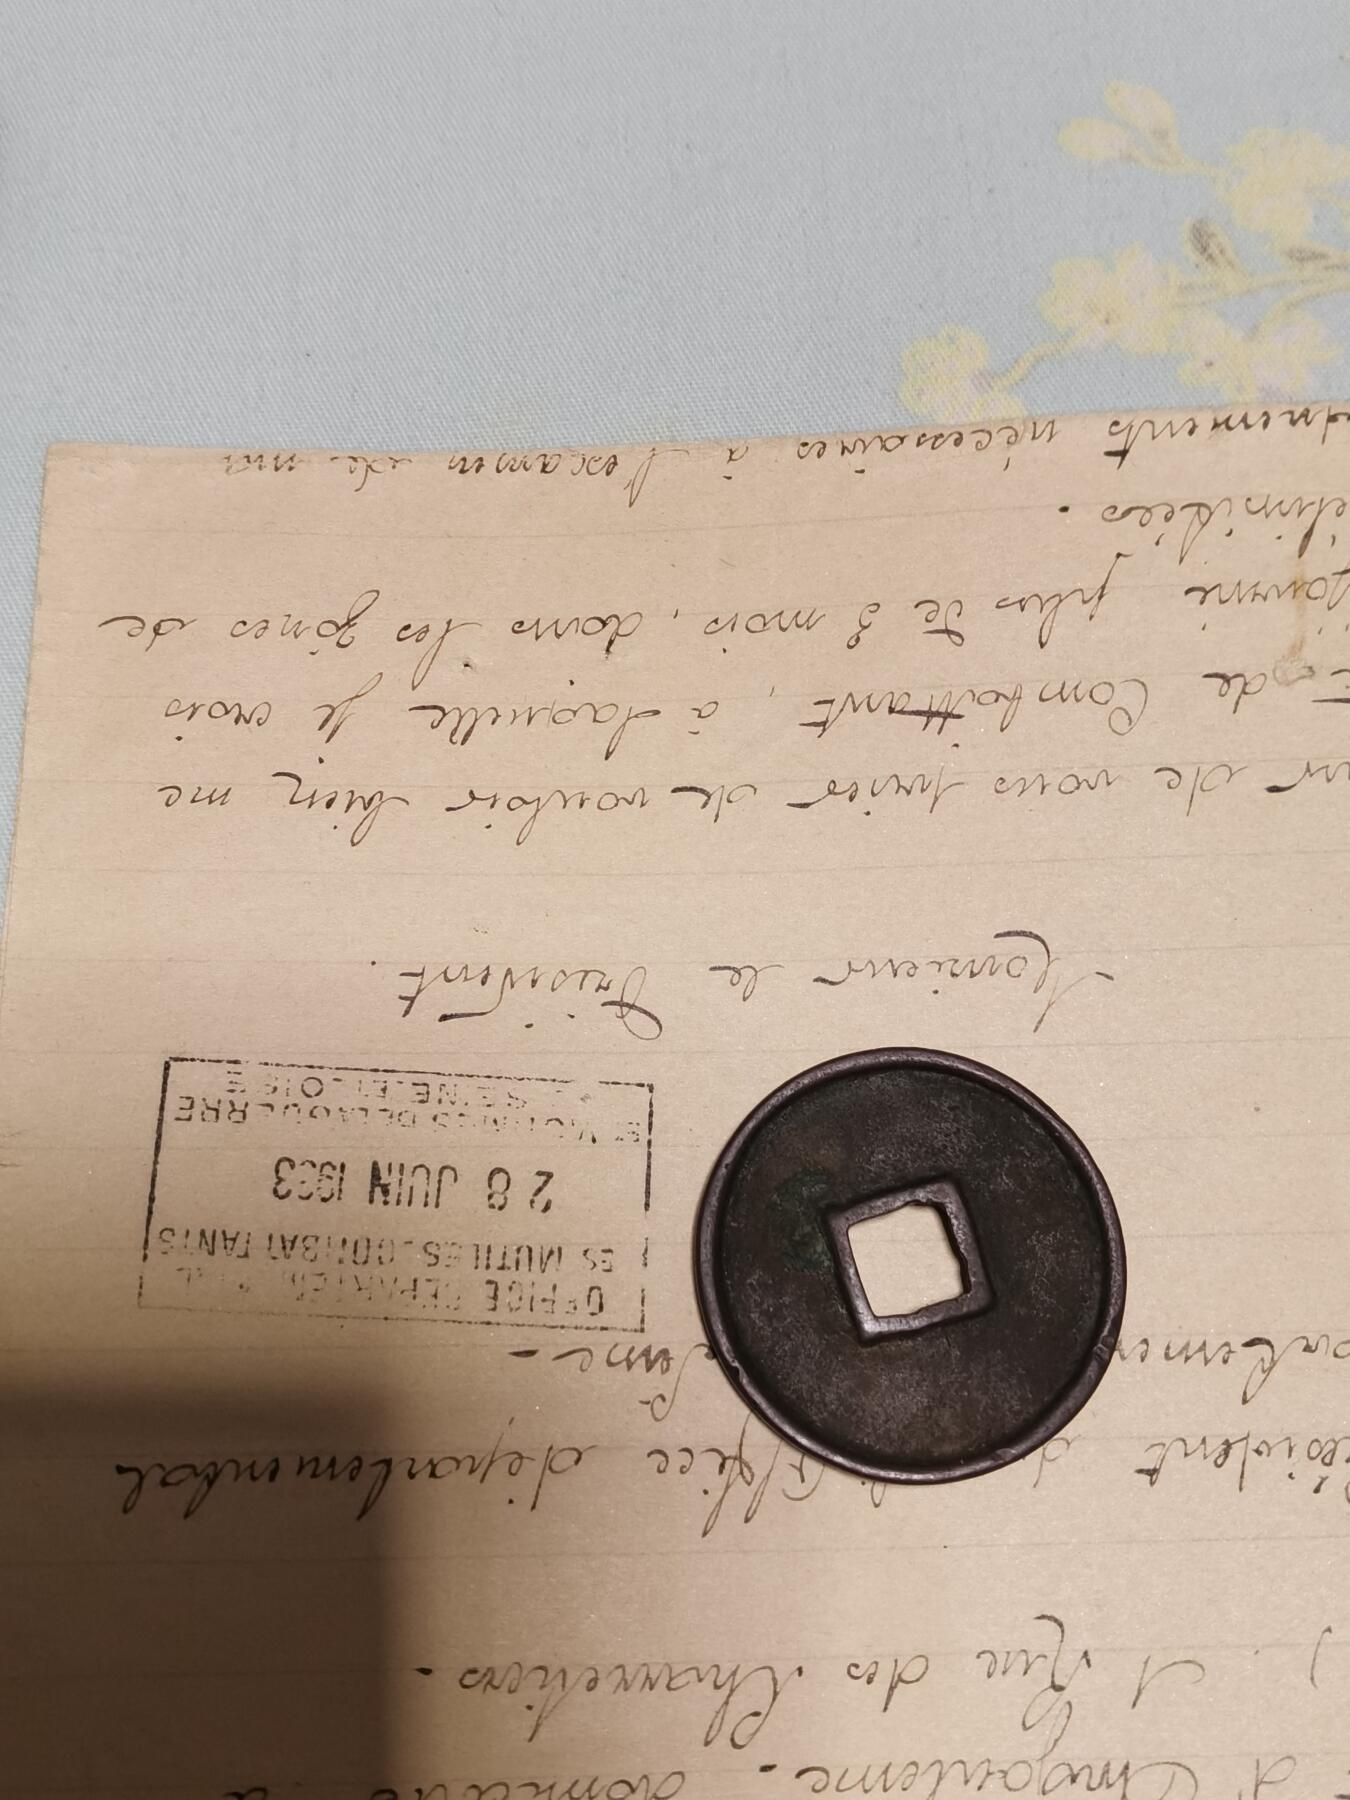 domicilié à
1 Rue des Charretiers.
d l'Office départemental
OFFICE DEPARTEMENTAL
ES MUTILES, COMBATTANTS
28 JUIN 1933
ET VICTIMES DE LA GUERRE
SEINE-ET-OISE
Monsieur le Président.
de vous prier de vouloir bien me
de Combattant, à laquelle je crois
plus de 3 mois, dans les zônes de
nécessaires à l'examen de ma